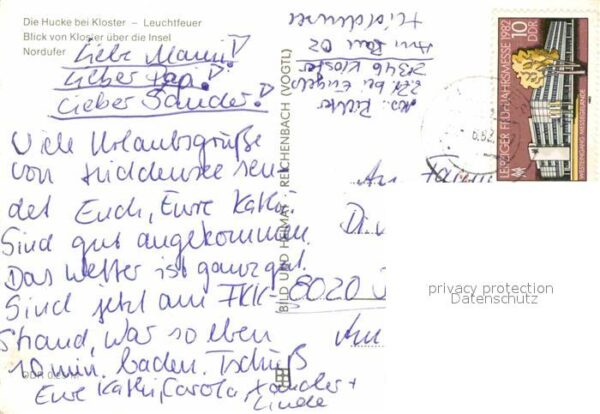 Die Hucke bei Kloster – Leuchtfeuer
Blick von Kloster über die Insel
Nordufer
Liebe Mammi!
Lieber Pap.!
Lieber Sander!
Viele Urlaubsgrüße
von Hiddensee sen-
det Euch, Eure Kathi.
Sind gut angekommen.
Das Wetter ist ganz gut.
Sind jetzt am FKK-
Strand, war so eben
10 min. baden. Tschüß
Eure Kathi, Carola,
Linda
DDR
BILD UND HEIMAT REICHENBACH (VOGTL)
Richter
bei Engels
2346 Kloster
Hiddensee
10
DDR
LEIPZIGER FRÜHJAHRSMESSE 1982
MESSEGELÄNDE
WESTEINGANG
An Fam
8020
privacy protection
Datenschutz